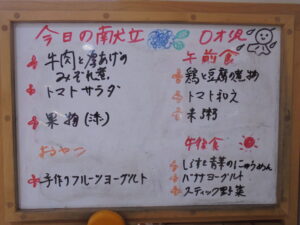 今日の献立
牛肉と厚あげの
みぞれ煮
トマトサラダ
果物(柿)
おやつ
手作りフルーツヨーグルト
0才児
午前食
鶏と豆腐の煮物
トマト和え
赤粥
午後食
しらすと青菜のにゅうめん
バナナヨーグルト
スティック野菜